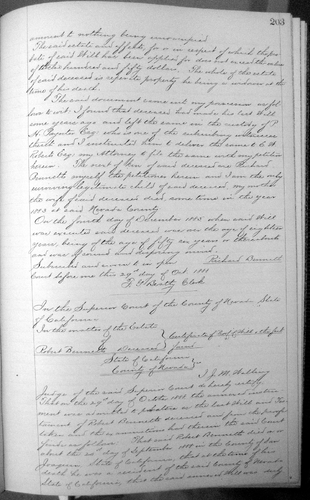 203
amount to nothing being
The said estate and effects for or in respect of which the pro-
bate of said Will has been applied for does not exceed the value
hundred and fifty dollars. The whole of the estate
of said deceased is separate property he being a widower at the
time of his death.
The said document came into my possession as fol-
lows to wit. I found that deceased had made his last Will
some years ago and left the same in the custody of
H. Esq who is one of the subscribing witnesses
thereto and I instructed him to deliver the same to
Esq my attorney to file the same with my petition
herein. The next of kin of said deceased are Richard
Bennett myself the petitioner herein and I am the only
surviving legitimate child of said deceased, my mother
the wife of said deceased died some time in the year
at said Nevada County
On the fourth day of December 1885 when said Will
was executed said deceased was over the age of eighteen
years, being of the age of fifty six years or thereabouts
and was of sound and disposing mind.
Subscribed and sworn to in open Richard Bennett
Court before me this 29th day of Oct 1888
Clerk
In the Superior Court of the County of Nevada State
of California
In the matter of the Estate
of Certificate of Proof of Will & facts
Robert Bennett Deceased found
State of California
County of Nevada
I J. M. Walling
Judge of the said Superior Court do hereby certify
That on the 29th day of October 1888 the annexed instru-
ment was admitted to probate as the last Will and Tes-
tament of Robert Bennett deceased and from the proofs
taken and the examination had therein the said Court
finds as follows: That said Robert Bennett died on or
about the day of September 1888 in the County of San
Joaquin State of California that at the time of his
death he was a resident of the said County of Nevada
State of California, that the said annexed Will was duly